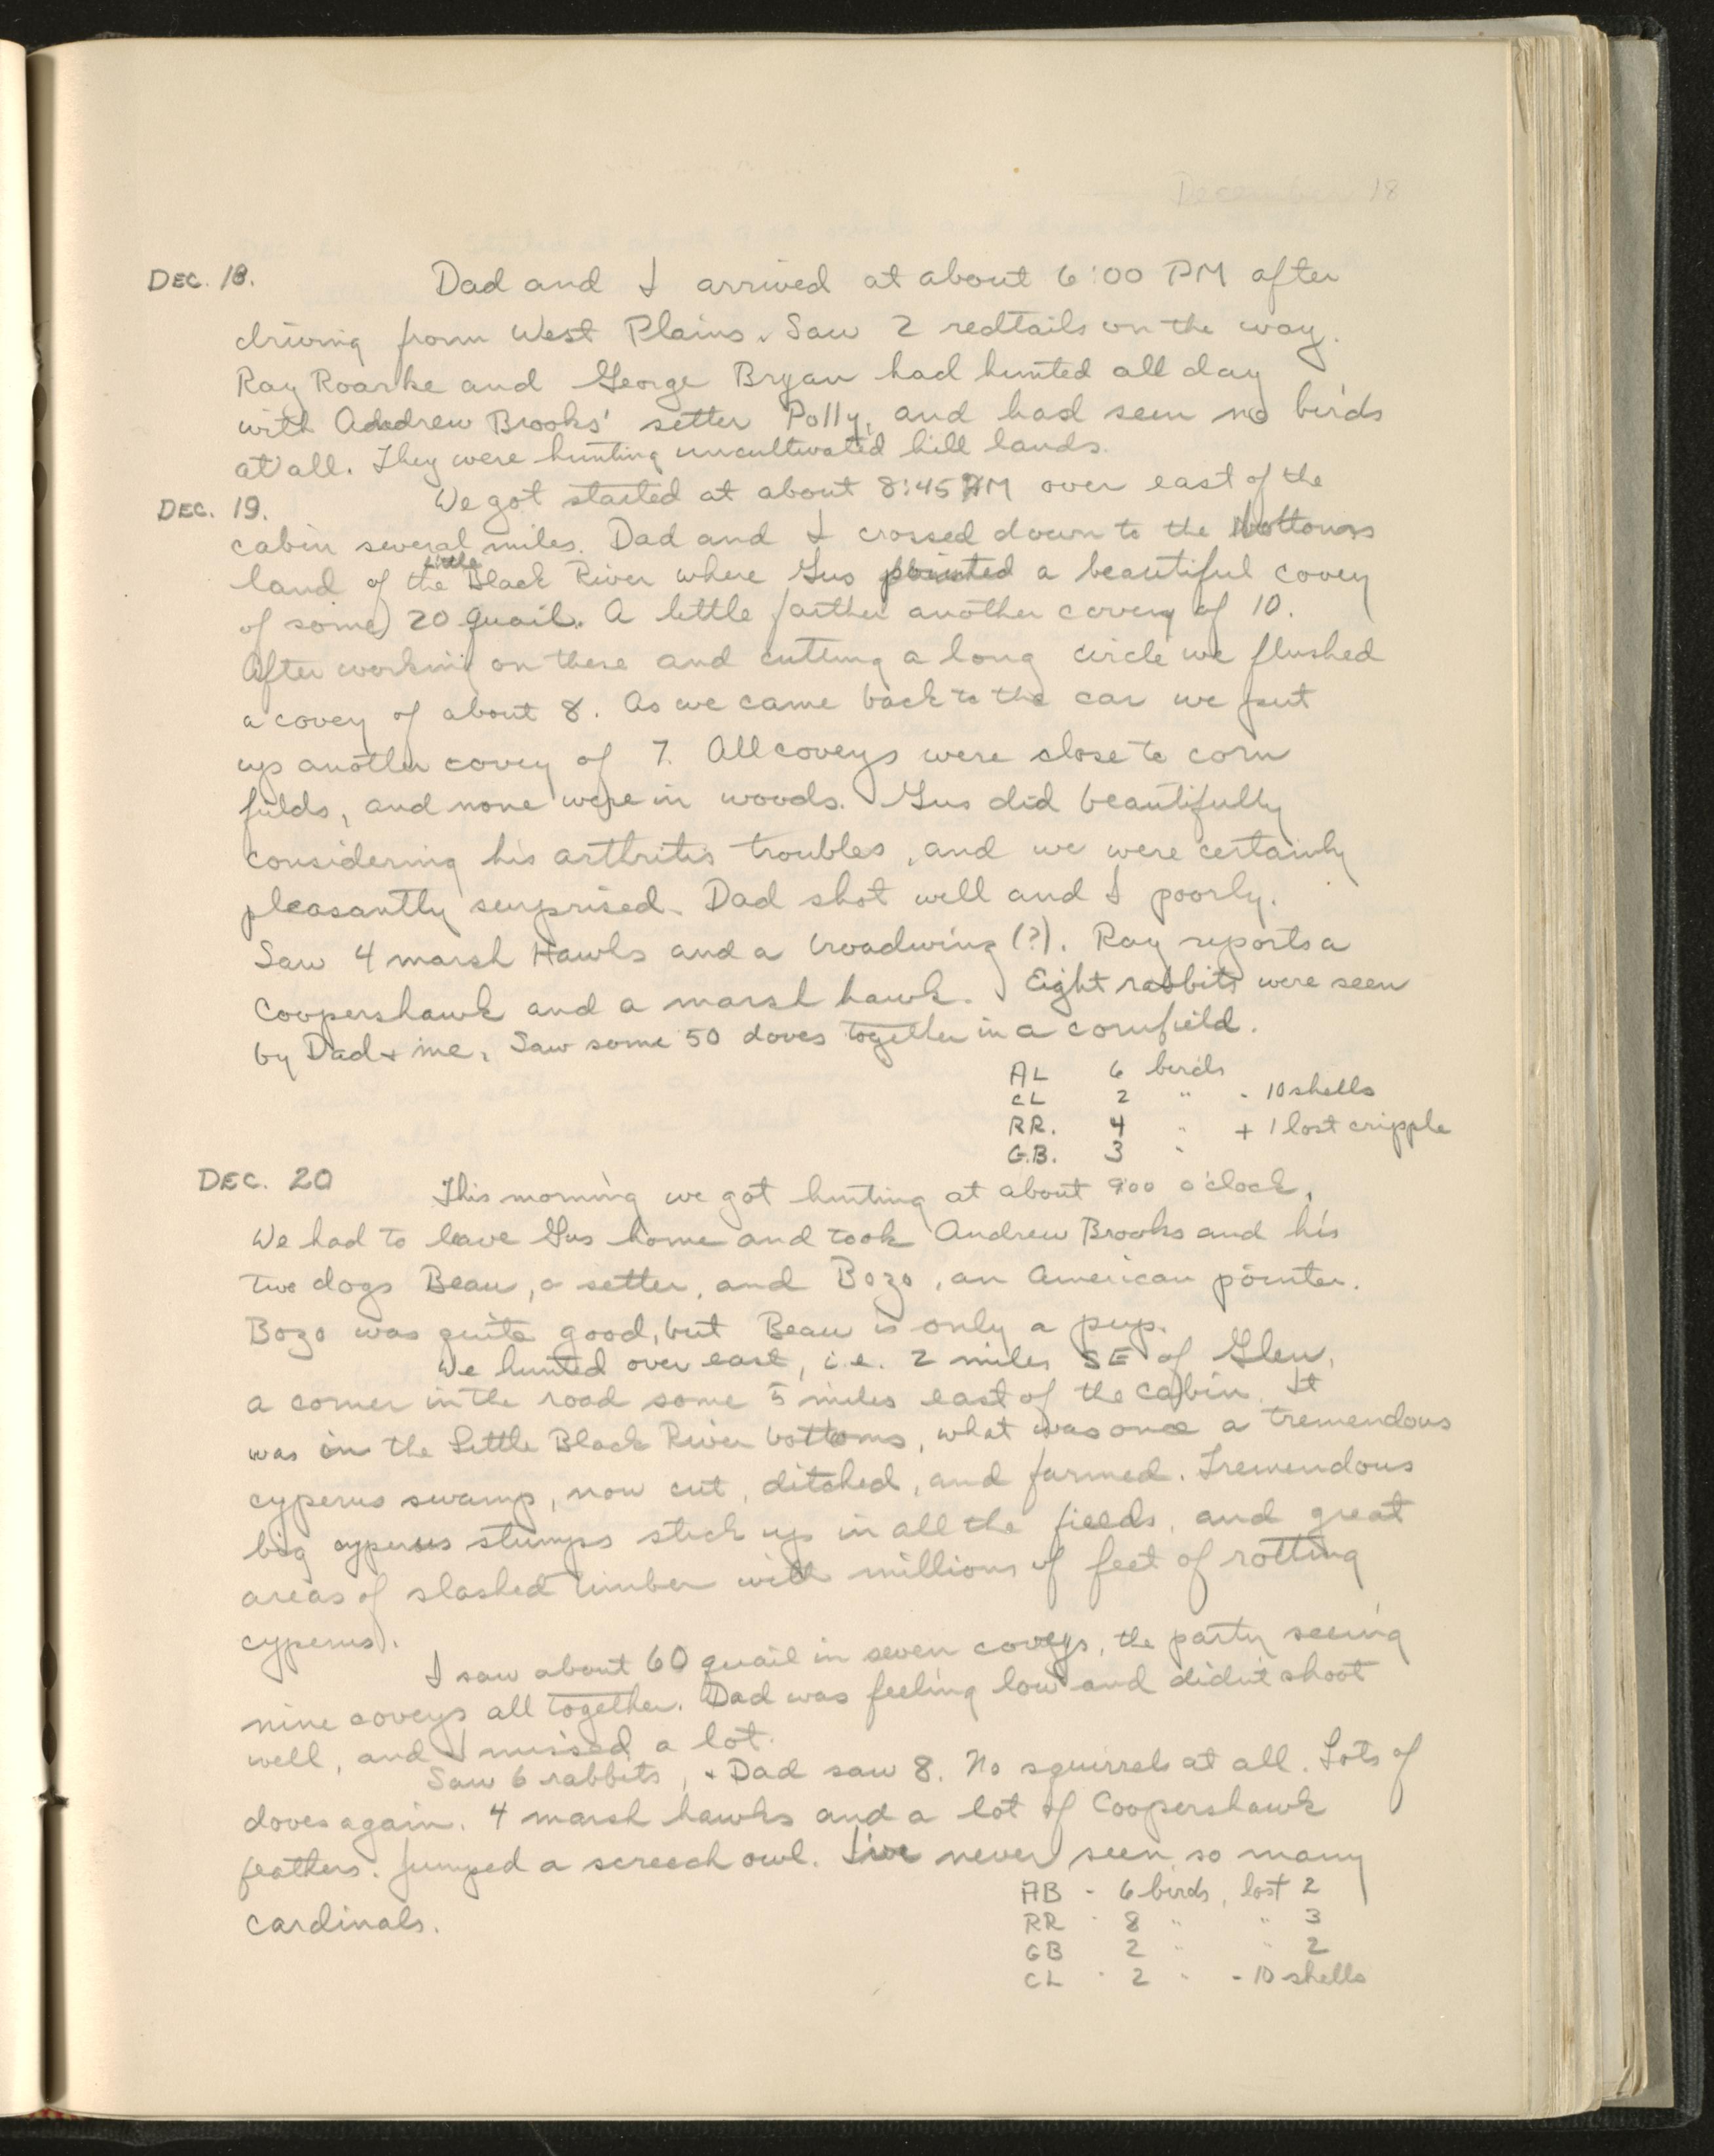 December 18
DEC. 18. Dad and I arrived at about 6:00 PM after
driving from West Plains. Saw 2 redtails on the way.
Ray Roarke and George Bryan had hunted all day
with Andrew Brooks' setter Polly, and had seen no birds
at all. They were hunting uncultivated hill lands.
DEC. 19. We got started at about 8:45 AM over east of the
cabin several miles. Dad and I crossed down to the bottoms
land of the Little Black River where Gus pointed a beautiful covey
of some 20 quail. A little farther another covey of 10.
After working on these and cutting a long circle we flushed
a covey of about 8. As we came back to the car we put
up another covey of 7. All coveys were close to corn
fields, and none were in woods. Gus did beautifully
considering his arthritis troubles, and we were certainly
pleasantly surprised. Dad shot well and I poorly.
Saw 4 marsh Hawks and a broadwing (?). Ray reports a
Coopershawk and a marsh hawk. Eight rabbits were seen
by Dad & me. Saw some 50 doves together in a cornfield.
AL 6 birds
CL 2 " - 10 shells
RR. 4 " + 1 lost cripple
G.B. 3 "
DEC. 20 This morning we got hunting at about 9:00 o'clock.
We had to leave Gus home and took Andrew Brooks and his
two dogs Beau, a setter, and Bozo, an American pointer.
Bozo was quite good, but Beau is only a pup.
We hunted over east, i.e. 2 miles SE of Glen,
a corner in the road some 5 miles east of the cabin. It
was in the Little Black River bottoms, what was once a tremendous
cyperus swamp, now cut, ditched, and farmed. Tremendous
big cyperus stumps stick up in all the fields, and great
areas of slashed timber with millions of feet of rotting
cyperus.
I saw about 60 quail in seven coveys, the party seeing
nine coveys all together. Dad was feeling low and didn't shoot
well, and I missed a lot.
Saw 6 rabbits, & Dad saw 8. No squirrels at all. Lots of
doves again. 4 marsh hawks and a lot of Coopershawk
feathers. Jumped a screech owl. I've never seen so many
cardinals.
AB - 6 birds, lost 2
RR - 8 " " 3
GB 2 " " 2
CL - 2 " - 10 shells